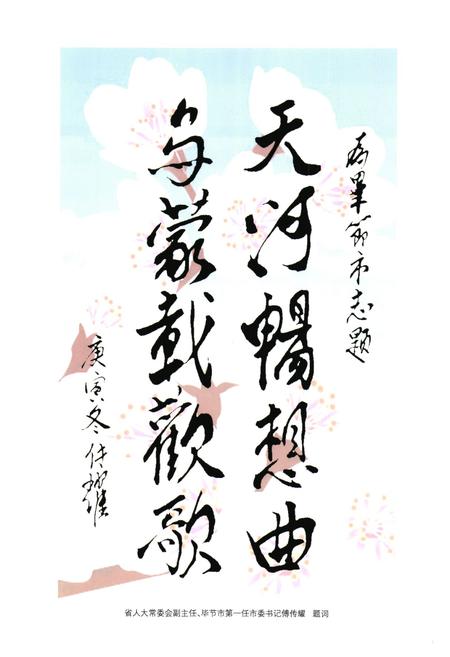 为畢节市志題
天河暢想曲
乌蒙載歡歌
庚寅冬傳耀
省人大常委会副主任、毕节市第一任市委书记傅传耀 题词